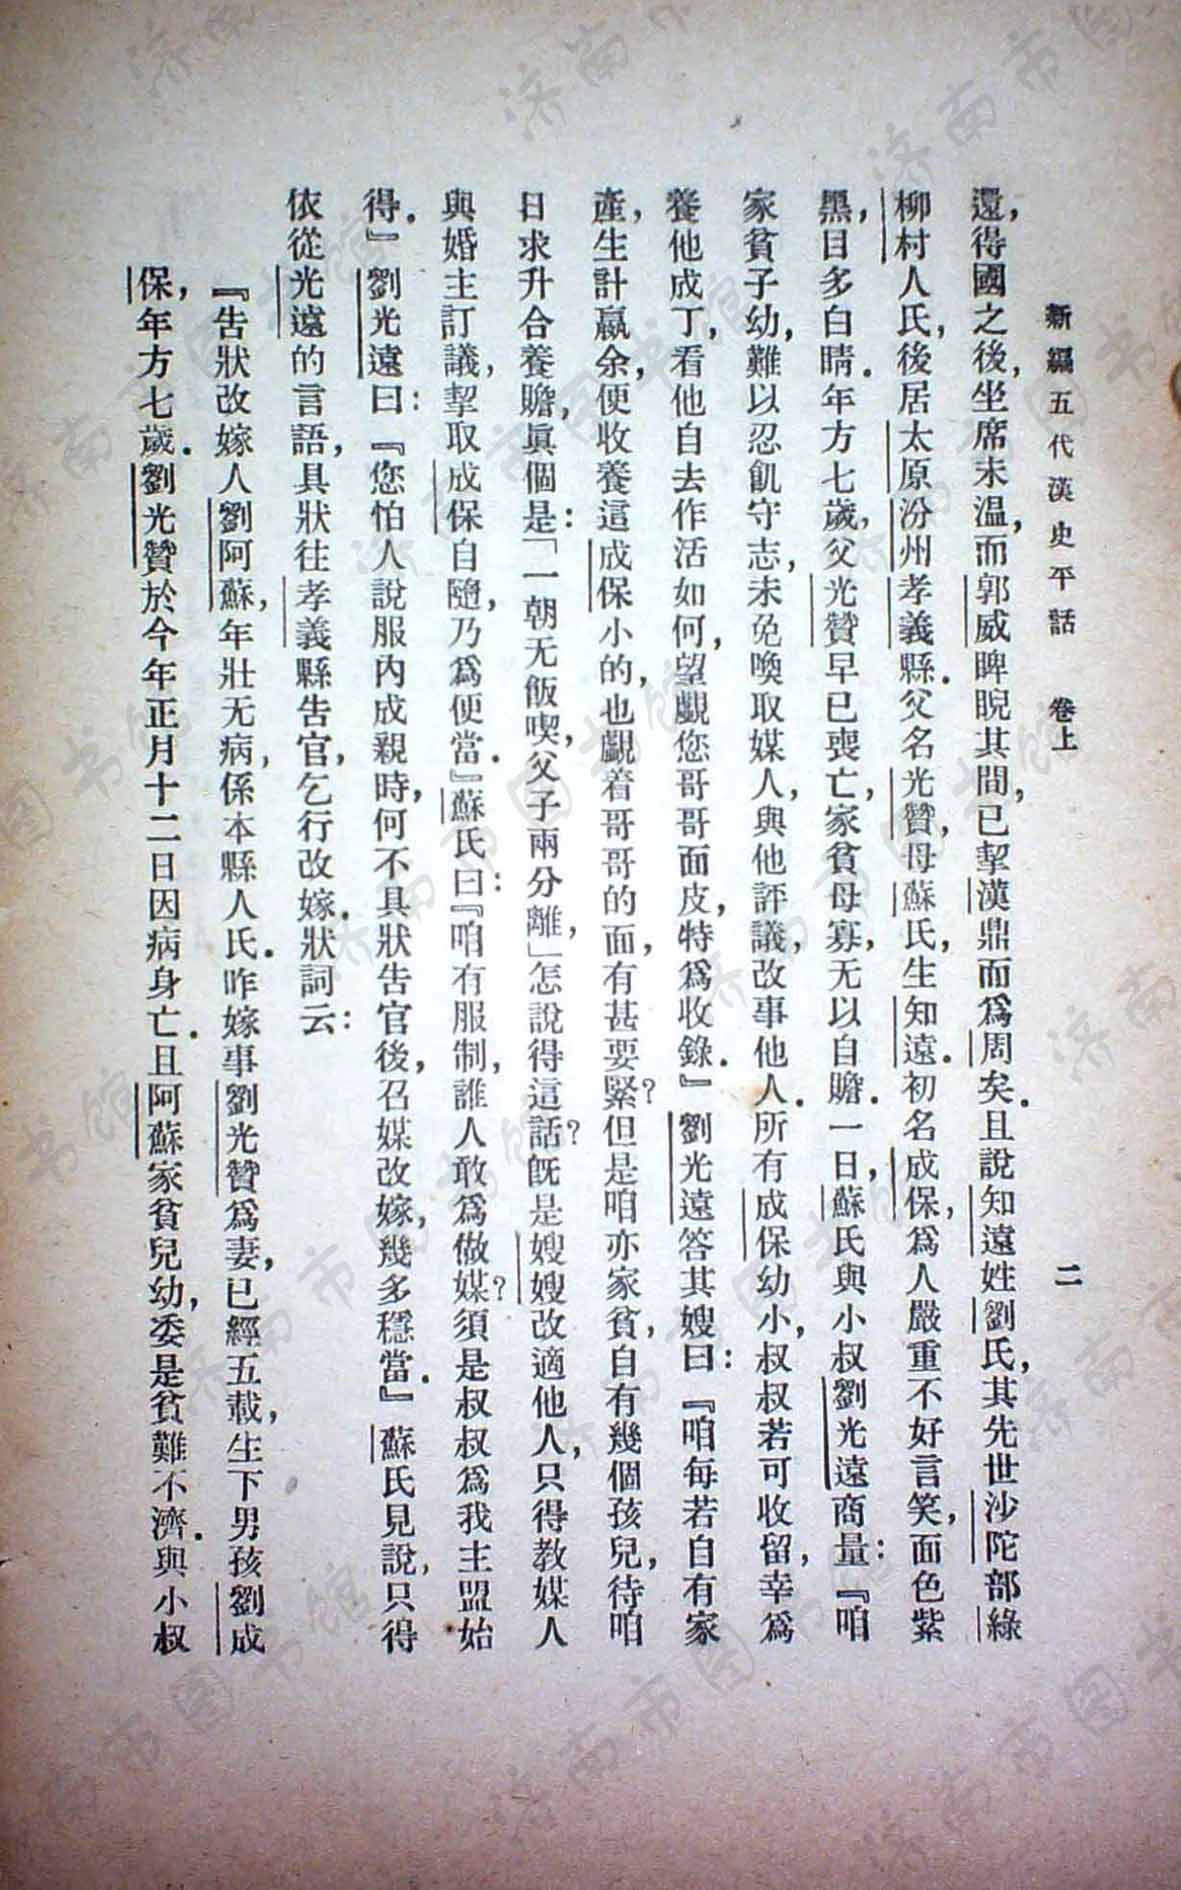 新編五代漢史平話　卷上　二
還，得國之後，坐席未溫，而郭威睥睨其間，已挈漢鼎而爲周矣．且說知遠姓劉氏，其先世沙陀部綠
柳村人氏，後居太原汾州孝義縣．父名光贊，母蘇氏，生知遠．初名成保，爲人嚴重不好言笑，面色紫
黑，目多白睛．年方七歲，父光贊早已喪亡，家貧母寡，无以自贍．一日，蘇氏與小叔劉光遠商量：『咱
家貧子幼，難以忍飢守志，未免喚取媒人，與他評議，改事他人．所有成保幼小，叔叔若可收留，幸爲
養他成丁，看他自去作活如何，望覷您哥哥面皮，特爲收錄．』劉光遠答其嫂曰：『咱每若自有家
產，生計贏余，便收養這成保小的，也覷着哥哥的面，有甚要緊？但是咱亦家貧，自有幾個孩兒，待咱
日求升合養贍，眞個是：「一朝无飯喫，父子兩分離，」怎說得這話？旣是嫂嫂改適他人，只得敎媒人
與婚主訂議，挈取成保自隨，乃爲便當．』蘇氏曰：『咱有服制，誰人敢爲做媒？須是叔叔爲我主盟始
得．』劉光遠曰：『您怕人說服內成親時，何不具狀告官後，召媒改嫁，幾多穩當．』蘇氏見說，只得
依從光遠的言語，具狀往孝義縣告官，乞行改嫁．狀詞云：
『告狀改嫁人劉阿蘇，年壯无病，係本縣人氏．昨嫁事劉光贊爲妻，已經五載，生下男孩劉成
保，年方七歲．劉光贊於今年正月十二日因病身亡．且阿蘇家貧兒幼，委是貧難不濟．與小叔
济南市图书馆